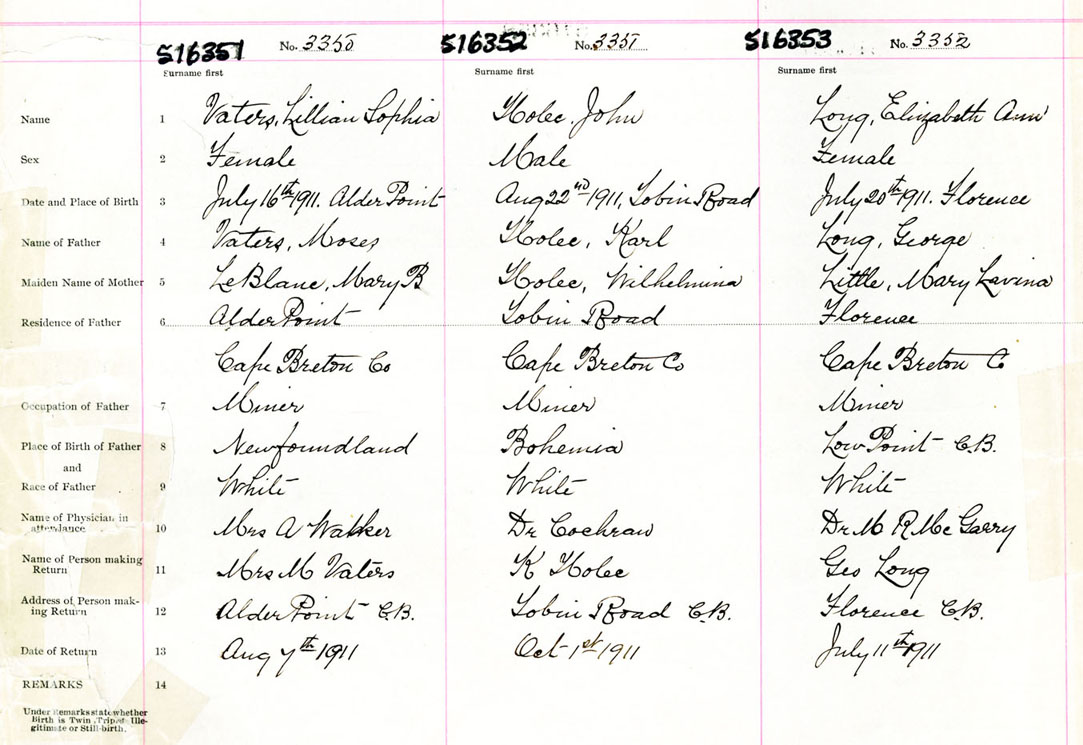 516351 No. 3350 516352 No. 3351 516353 No. 3352
Surname first Surname first Surname first
Name 1 Vaters, Lillian Sophia Holec, John Long, Elizabeth Ann
Sex 2 Female Male Female
Date and Place of Birth 3 July 16th 1911. Alder Point Aug 22nd 1911, Tobin Road July 20th 1911. Florence
Name of Father 4 Vaters, Moses Holec, Karl Long, George
Maiden Name of Mother 5 LeBlanc, Mary B Holec, Wilhelmina Little, Mary Lavina
Residence of Father 6 Alder Point Tobin Road Florence
Cape Breton Co Cape Breton Co Cape Breton C
Occupation of Father 7 Miner Miner Miner
Place of Birth of Father 8 Newfoundland Bohemia Low Point C.B.
and
Race of Father 9 White White White
Name of Physician in
attendance 10 Mrs A Walker Dr Cochran Dr M R McGarry
Name of Person making
Return 11 Mrs M Vaters K Holec Geo Long
Address of Person mak-
ing Return 12 Alder Point C.B. Tobin Road C.B. Florence C.B.
Date of Return 13 Aug 7th 1911 Oct 1st 1911 July 11th 1911
REMARKS 14
Under Remarks state whether
Birth is Twin, Triplet, Ille-
gitimate or Still-birth.